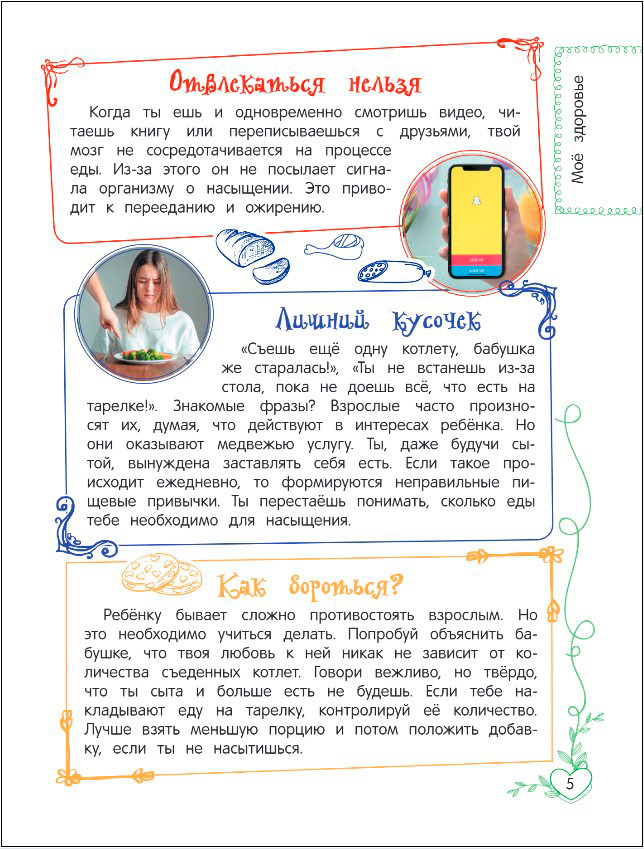 Моё здоровье
Отвлекаться нельзя
Когда ты ешь и одновременно смотришь видео, чи-
таешь книгу или переписываешься с друзьями, твой
мозг не сосредотачивается на процессе
еды. Из-за этого он не посылает сигна-
ла организму о насыщении. Это приво-
дит к перееданию и ожирению.
Лишний кусочек
«Съешь ещё одну котлету, бабушка
же старалась!», «Ты не встанешь из-за
стола, пока не доешь всё, что есть на
тарелке!». Знакомые фразы? Взрослые часто произно-
сят их, думая, что действуют в интересах ребёнка. Но
они оказывают медвежью услугу. Ты, даже будучи сы-
той, вынуждена заставлять себя есть. Если такое про-
исходит ежедневно, то формируются неправильные пи-
щевые привычки. Ты перестаёшь понимать, сколько еды
тебе необходимо для насыщения.
Как бороться?
Ребёнку бывает сложно противостоять взрослым. Но
это необходимо учиться делать. Попробуй объяснить ба-
бушке, что твоя любовь к ней никак не зависит от ко-
личества съеденных котлет. Говори вежливо, но твёрдо,
что ты сыта и больше есть не будешь. Если тебе на-
кладывают еду на тарелку, контролируй её количество.
Лучше взять меньшую порцию и потом положить добав-
ку, если ты не насытишься.
5